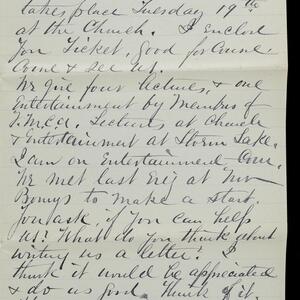 takes place Tuesday 19th
at the Church. I Enclose
You Ticket, Good for Course,
Come & see us.
We give four lectures, & one
Entertainment by Members of
Y.M.C.A. Lectures at Church
& Entertainment at Storm Lake.
I am on Entertainment Com.
We met last Evig at Mr
to make a start.
You ask, if You can help
us? What do you think about
writing us a letter? I
think it would be appreciated
& do us good. Think of it.